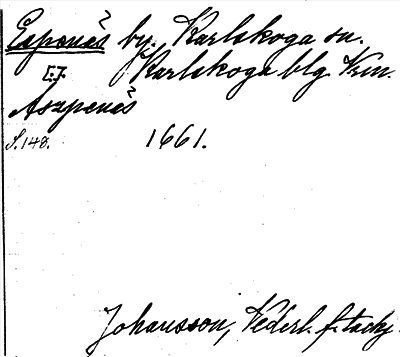 Espenäs by, Karlskoga sn.
[E.J. Karlskoga blg. Vrm.
Aszpenäs
S. 148. 1661.
Johansson, Nederl. f. tackj.